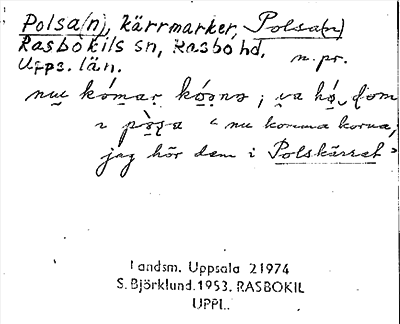 Polsa(n), kärrmarker, Polsa(n)
Rasbokils sn, Rasbo hd, n. pr.
Upps. län.
nu kómar kó̱o̱na ; va hó̱ dom
i pò̱sa "nu komma korna,
jag hör dem i Polskärret"
Landsm. Uppsala 21974
S. Björklund. 1953. RASBOKIL
UPPL.